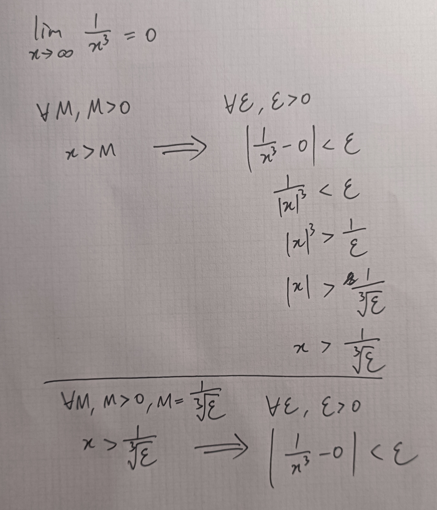 lim x→∞ 1/x³ = 0
∀M, M>0 ∀ε, ε>0
x>M ⟹ |1/x³ - 0| < ε
1/|x|³ < ε
|x|³ > 1/ε
|x| > 1/∛ε
x > 1/∛ε
∀M, M>0, M = 1/∛ε ∀ε, ε>0
x > 1/∛ε ⟹ |1/x³ - 0| < ε